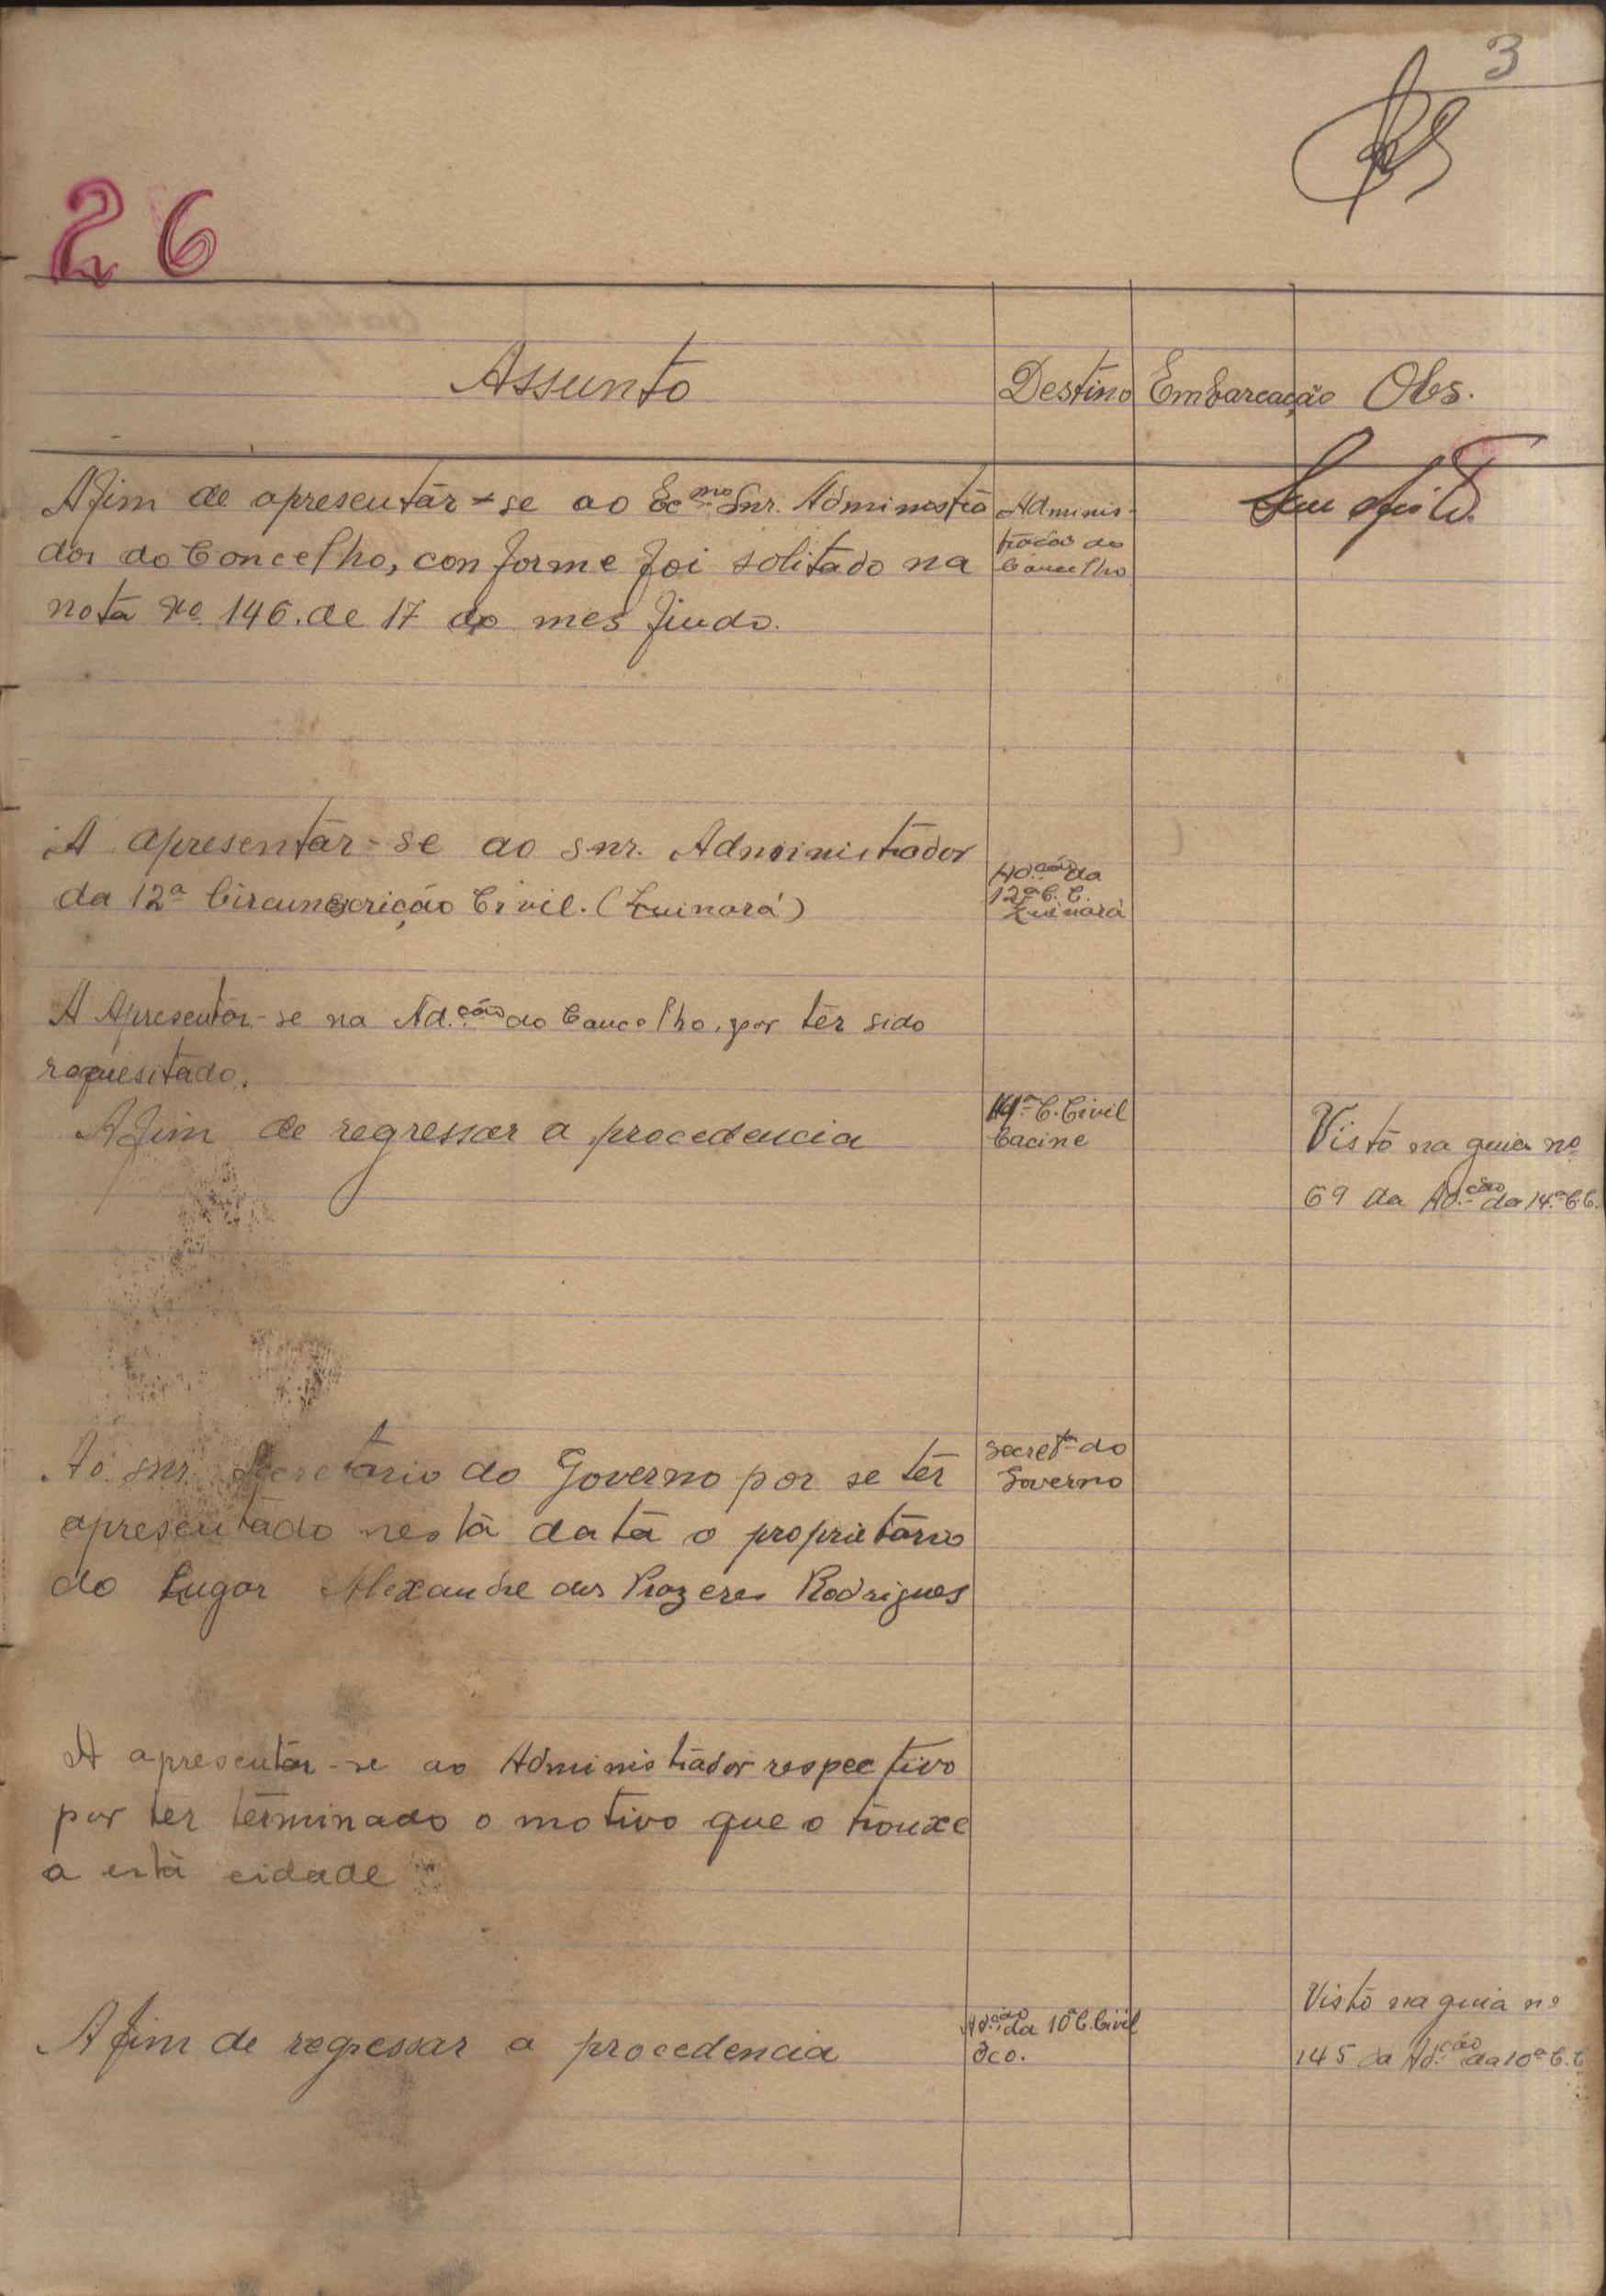 3
26
Assunto
Destino
Embarcação
Obs.
Afim de apresentar-se ao Ecmo Snr. Administra
dor do Concelho, conforme foi solitado na
nota no. 146. de 17 do mes findo.
Adminis-
tração do
Concelho
A apresentar-se ao snr. Administrador
da 12ª Circunscrição Civil. (Quinará)
Ad.ção da
12ª C. C.
Quinará
A Apresentar-se na Ad.ção do Concelho, por têr sido
requesitado.
Afim de regressar a procedencia
14ª C. Civil
Cacine
Visto na guia nº
69 da Ad.ção da 14.ª C.C.
Ao snr. Secretario do Governo por se têr
apresentado nesta data o proprietario
do Lugar Alexandre dos Prazeres Rodrigues
Secretª do
Governo
A apresentar-se ao Administrador respectivo
por ter terminado o motivo que o trouxe
a esta cidade
Afim de regressar a procedencia
Ad.ção da 10ª C. Civil
Oco.
Visto na guia nº
145 da Ad.ção da 10ª C.C